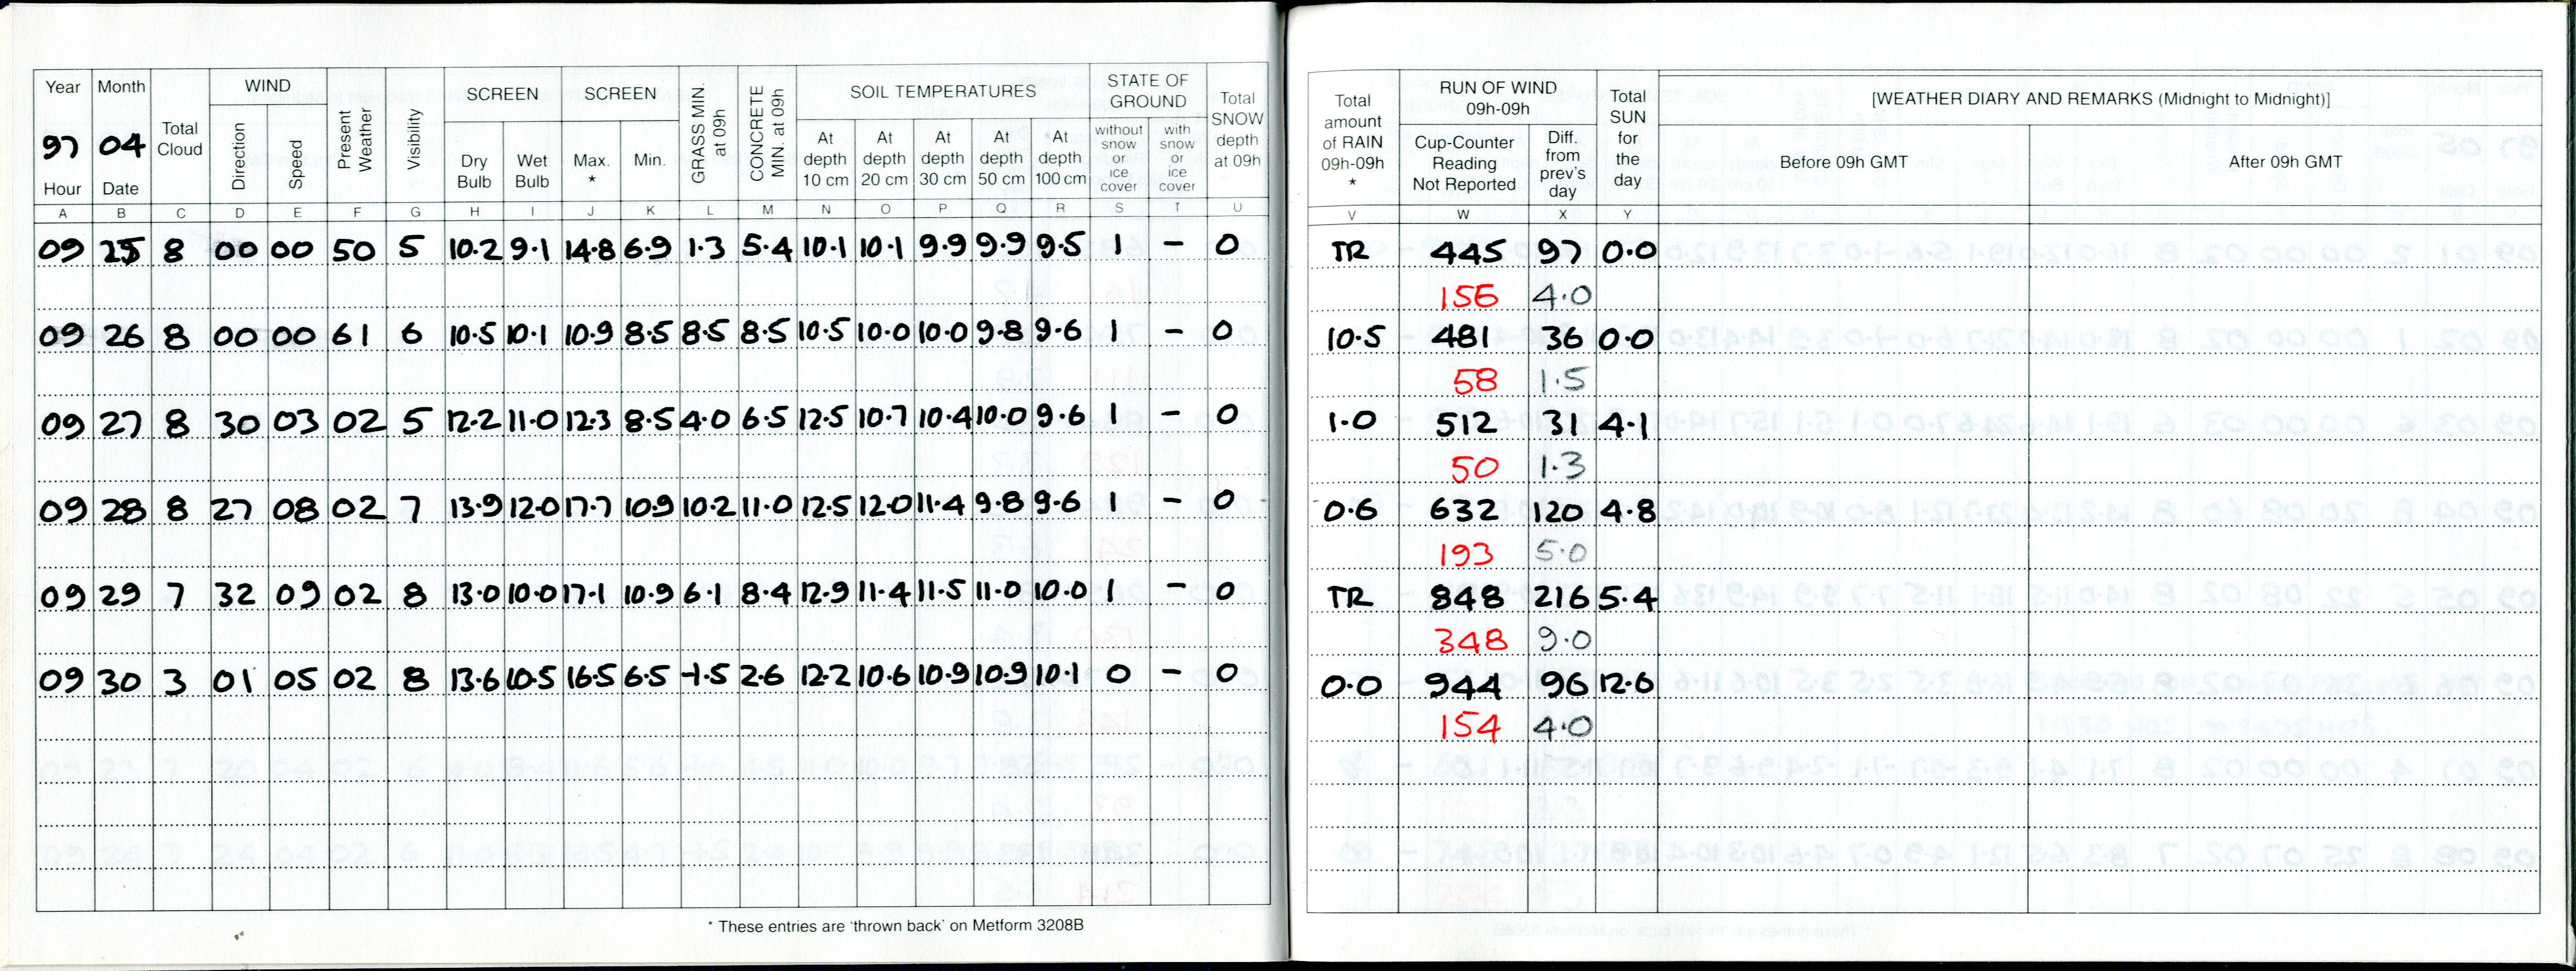 Year Month WIND SCREEN SCREEN GRASS MIN. at 09h CONCRETE MIN. at 09h SOIL TEMPERATURES STATE OF GROUND Total SNOW depth at 09h
97 04 Total Cloud Direction Speed Present Weather Visibility Dry Bulb Wet Bulb Max. * Min. At depth 10 cm At depth 20 cm At depth 30 cm At depth 50 cm At depth 100 cm without snow or ice cover with snow or ice cover
Hour Date
A B C D E F G H I J K L M N O P Q R S T U
09 25 8 00 00 50 5 10.2 9.1 14.8 6.9 1.3 5.4 10.1 10.1 9.9 9.9 9.5 1 - 0
09 26 8 00 00 61 6 10.5 10.1 10.9 8.5 8.5 8.5 10.5 10.0 10.0 9.8 9.6 1 - 0
09 27 8 30 03 02 5 12.2 11.0 12.3 8.5 4.0 6.5 12.5 10.7 10.4 10.0 9.6 1 - 0
09 28 8 27 08 02 7 13.9 12.0 17.7 10.9 10.2 11.0 12.5 12.0 11.4 9.8 9.6 1 - 0
09 29 7 32 09 02 8 13.0 10.0 17.1 10.9 6.1 8.4 12.9 11.4 11.5 11.0 10.0 1 - 0
09 30 3 01 05 02 8 13.6 10.5 16.5 6.5 -1.5 2.6 12.2 10.6 10.9 10.9 10.1 0 - 0
* These entries are 'thrown back' on Metform 3208B
Total amount of RAIN 09h-09h * RUN OF WIND 09h-09h Total SUN for the day [WEATHER DIARY AND REMARKS (Midnight to Midnight)]
Cup-Counter Reading Not Reported Diff. from prev's day Before 09h GMT After 09h GMT
V W X Y
TR 445 97 0.0
156 4.0
10.5 481 36 0.0
58 1.5
1.0 512 31 4.1
50 1.3
0.6 632 120 4.8
193 5.0
TR 848 216 5.4
348 9.0
0.0 944 96 12.6
154 4.0